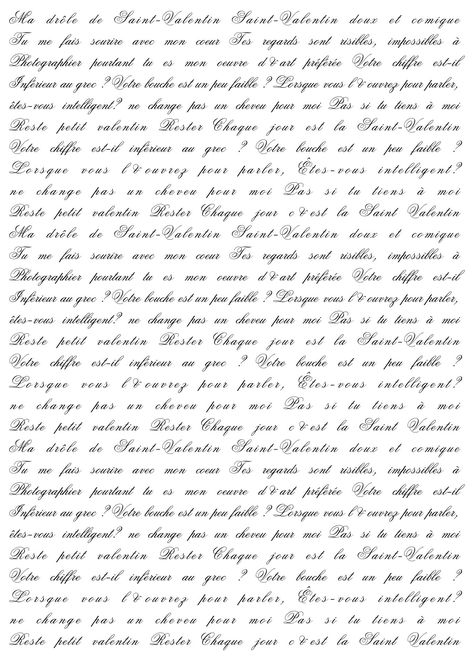 Ma drôle de Saint-Valentin Saint-Valentin doux et comique
Tu me fais sourire avec mon coeur Tes regards sont risibles, impossibles à
Photographier pourtant tu es mon oeuvre d&art préférée Votre chiffre est-il
Inférieur au grec ? Votre bouche est un peu faible ? Lorsque vous l&ouvrez pour parler,
êtes-vous intelligent? ne change pas un cheveu pour moi Pas si tu tiens à moi
Reste petit valentin Rester Chaque jour est la Saint-Valentin
Votre chiffre est-il inférieur au grec ? Votre bouche est un peu faible ?
Lorsque vous l&ouvrez pour parler, Êtes-vous intelligent?
ne change pas un cheveu pour moi Pas si tu tiens à moi
Reste petit valentin Rester Chaque jour c&est la Saint Valentin
Ma drôle de Saint-Valentin Saint-Valentin doux et comique
Tu me fais sourire avec mon coeur Tes regards sont risibles, impossibles à
Photographier pourtant tu es mon oeuvre d&art préférée Votre chiffre est-il
Inférieur au grec ? Votre bouche est un peu faible ? Lorsque vous l&ouvrez pour parler,
êtes-vous intelligent? ne change pas un cheveu pour moi Pas si tu tiens à moi
Reste petit valentin Rester Chaque jour est la Saint-Valentin
Votre chiffre est-il inférieur au grec ? Votre bouche est un peu faible ?
Lorsque vous l&ouvrez pour parler, Êtes-vous intelligent?
ne change pas un cheveu pour moi Pas si tu tiens à moi
Reste petit valentin Rester Chaque jour c&est la Saint Valentin
Ma drôle de Saint-Valentin Saint-Valentin doux et comique
Tu me fais sourire avec mon coeur Tes regards sont risibles, impossibles à
Photographier pourtant tu es mon oeuvre d&art préférée Votre chiffre est-il
Inférieur au grec ? Votre bouche est un peu faible ? Lorsque vous l&ouvrez pour parler,
êtes-vous intelligent? ne change pas un cheveu pour moi Pas si tu tiens à moi
Reste petit valentin Rester Chaque jour est la Saint-Valentin
Votre chiffre est-il inférieur au grec ? Votre bouche est un peu faible ?
Lorsque vous l&ouvrez pour parler, Êtes-vous intelligent?
ne change pas un cheveu pour moi Pas si tu tiens à moi
Reste petit valentin Rester Chaque jour c&est la Saint Valentin